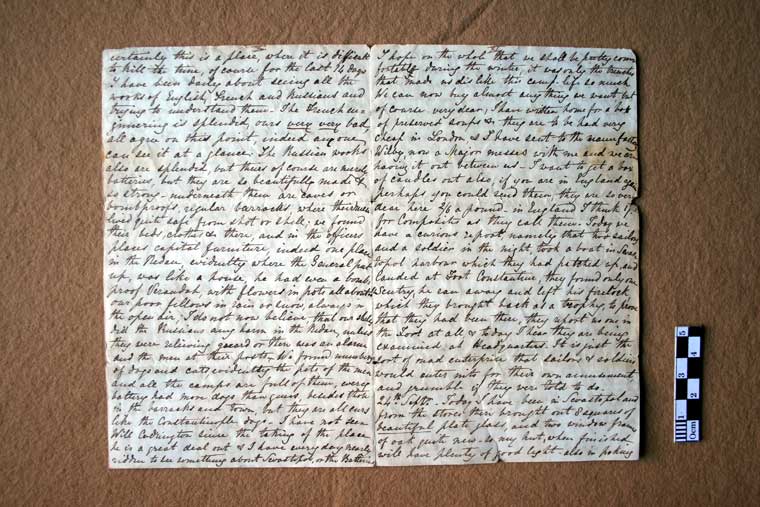 certainly this is a place, where it is difficult
to kill the time, of course for the last 14 days
I have been daily about seeing all the
works of English, French and Russians and
trying to understand them. The French en-
gineering is splendid, ours very very bad,
all agree on this point, indeed anyone
can see it at a glance. The Russian works
also are splendid but theirs of course are merely
batteries, but they are so beautifully made &
so strong, underneath them are caves or
bombproof regular barracks, where their men
lived quite safe from shot or shell; we found
their beds, clothes & there, and in the officers
places capital furniture, indeed one place
in the Redan evidently where the General put
up, was like a house, he had even a bomb
proof Verandah, with flowers in pots all about it
our poor fellows in rain or snow, always in
the open air, I do not now believe that our shells
did the Russians any harm in the Redan, unless
they were relieving guard or there was an alarm
and the men at their posts. We found numbers
of dogs and cats evidently the pets of the men
and all the camps are full of them, every
battery had more dogs than guns, besides those
in the barracks and town, but they are all curs
like the Constantinople dogs. I have not seen
Will Codrington since the taking of the place
he is a great deal out & I have every day nearly
ridden to see something about Sevastopol, or the Battery
I hope on the whole that we shall be pretty com
fortable during the winter, it was only the trenches
that made us dislike the camp life so much
We can now buy almost anything we want but
of course very dear; I have written home for a box
of preserved soups &c they are to be had very
cheap in London so I have sent to the manufactory
Wilby now a Major messes with me and we are
having it out between us. I want to get a box
of candles out also, if you are in England again
perhaps you could send them, they are so very
dear here 2/6 a pound, in England I think 1/-
for Composites as they call them. Today we
have a curious report, namely that two sailors
and a soldier in the night, took a boat in Sevas
topol harbour which they had patched up, and
landed at Fort Constantine, they found only one
Sentry, he ran away and left his firelock
which they brought back as a trophy, to prove
that they had been there, they upset no one in
the Fort at all & today I hear they are being
examined at Headquarters. It is just the
sort of mad enterprise that sailors & soldiers
would enter into for their own amusement
and grumble if they were told to do.
24th Septr. Today I have been in Sevastopol and
from the stores there brought out 8 squares of
beautiful plate glass, and two window frames
of oak quite new. so my hut, when finished
will have plenty of good light also in poking